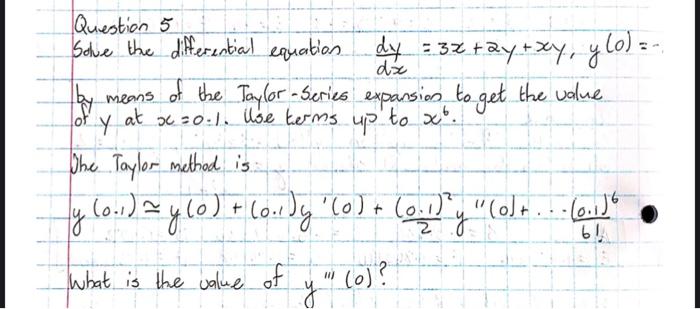 Question 5
Solve the differential equation dy/dx = 3x + 2y + xy, y(0) = -
by means of the Taylor-Series expansion to get the value
of y at x = 0.1. Use terms up to x⁶.
The Taylor method is
y(0.1) ≃ y(0) + (0.1)y'(0) + (0.1)²/2 y''(0) + ... (0.1)⁶/6!
What is the value of y'''(0)?